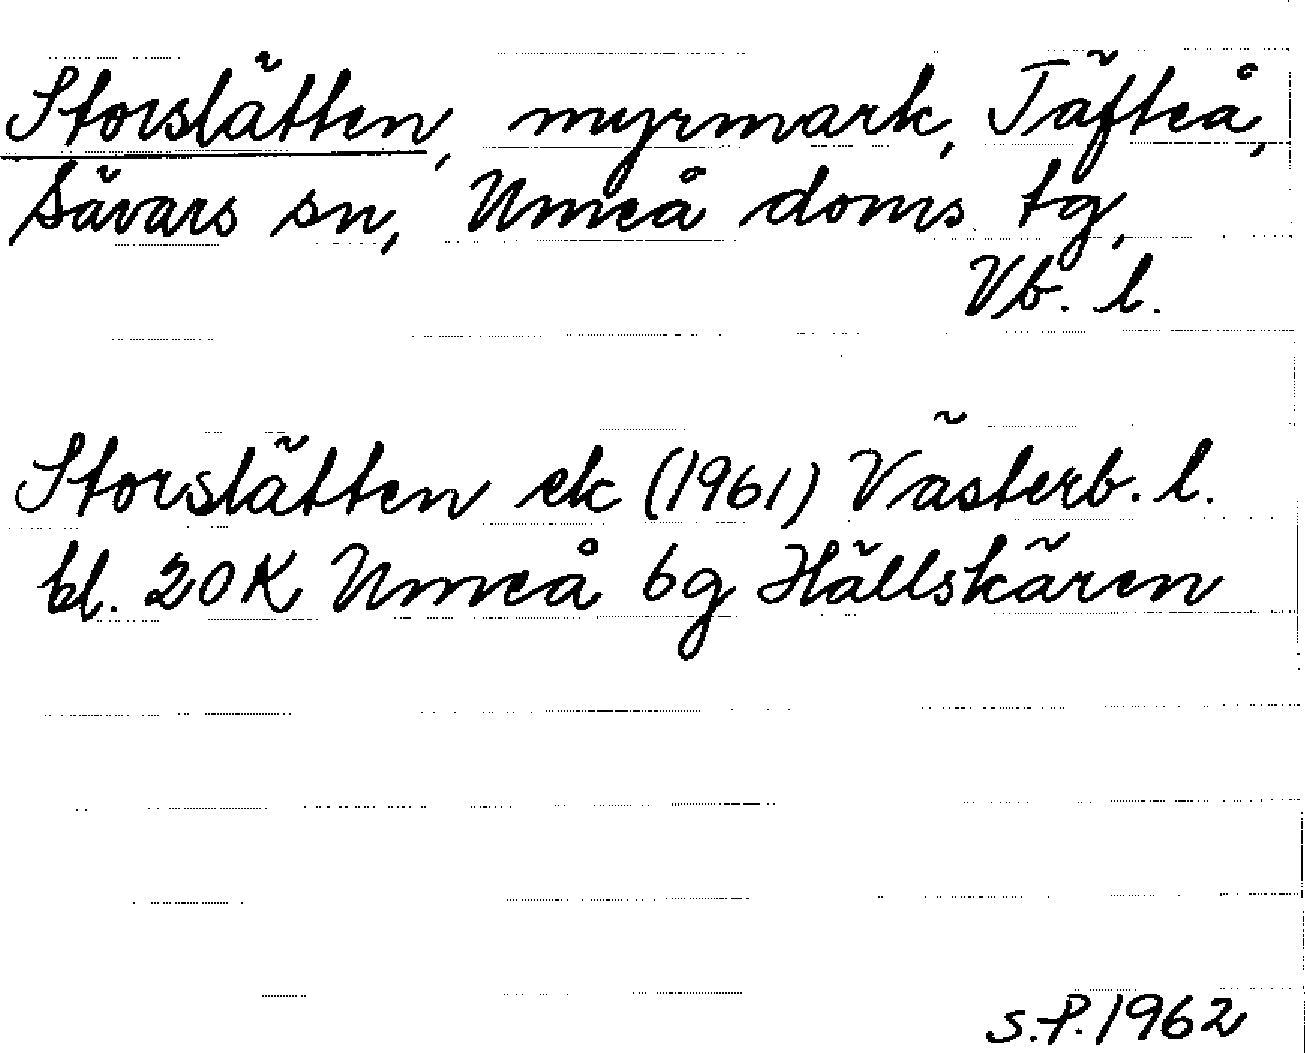 Storslätten, myrmark, Täfteå,
Sävars sn, Umeå doms. tg,
Vb. l.
Storslätten ek (1961) Västerb. l.
bl. 20K Umeå 6g Hällskären
S.P. 1962